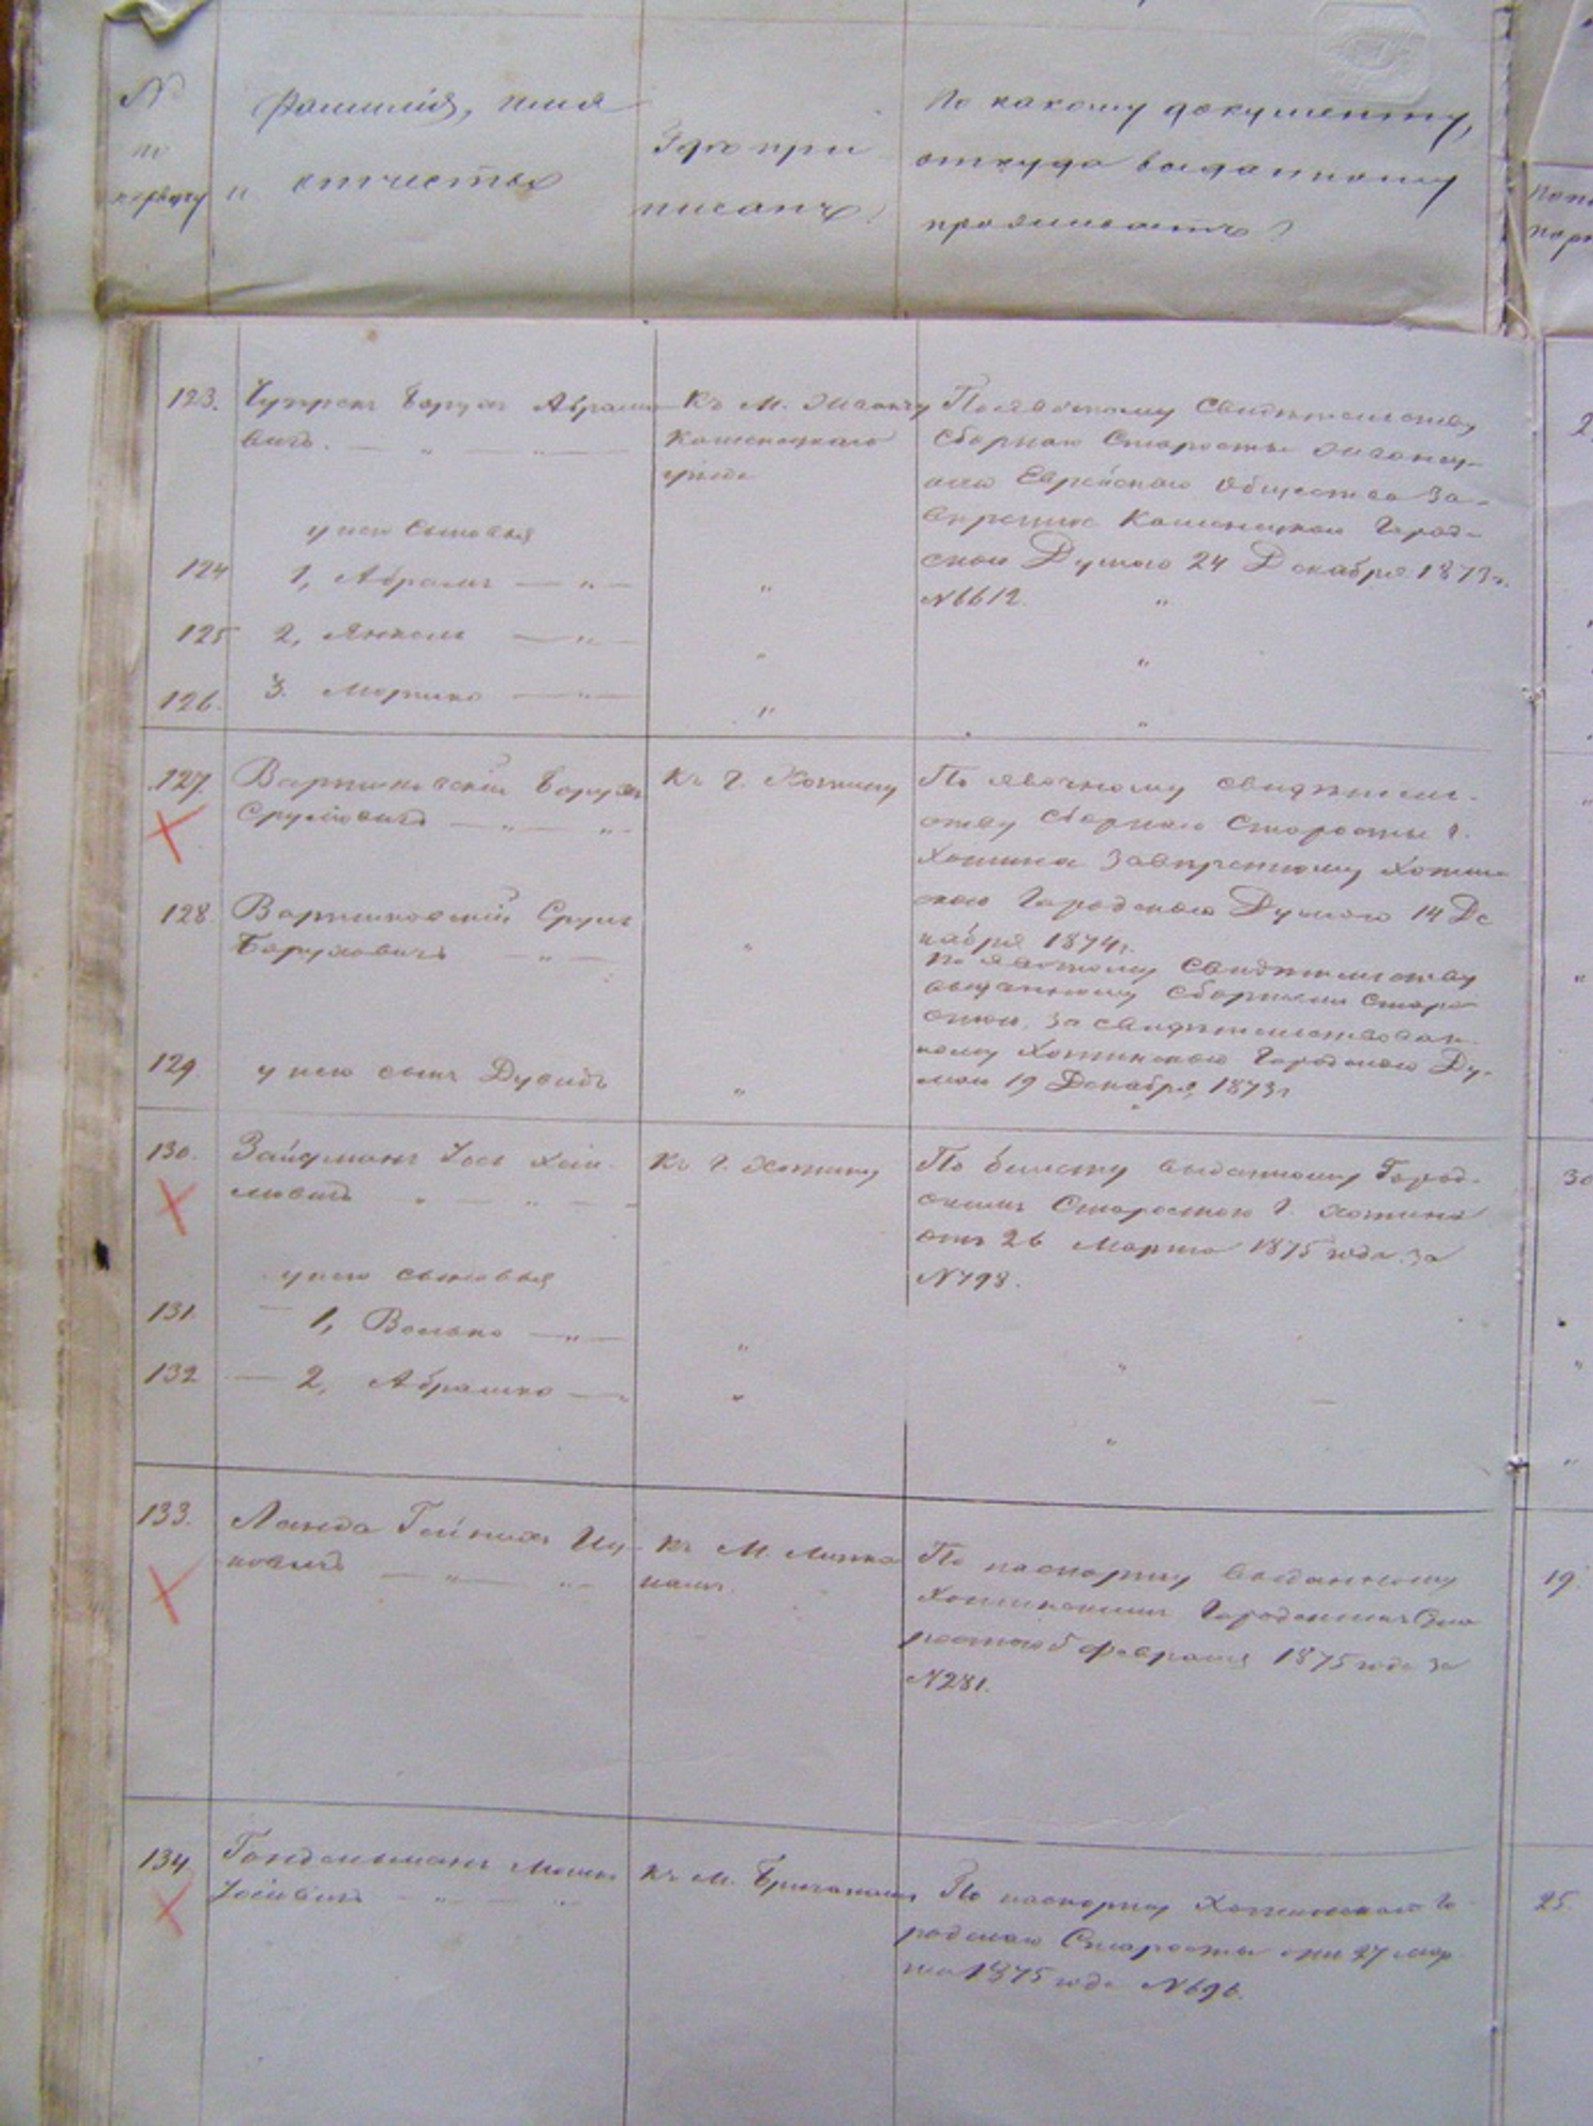 №
по
порядку
Фамилія, имя
и отчество
Где при
писанъ?
По какому документу,
откуда выданному
проживаетъ?
123. Борухъ Абрамо
вичъ
Къ М. Жванцу
Каменецкаго
уѣзда
По явочному Свидѣтельству
Сборнаго Старосты Жванец-
каго Еврейскаго Общества за-
Каменецкой Город-
ской Думою 24 Декабря 1873 г.
№ 6612.
у него сыновья
124 1, Абрамъ — „ —
125 2, Янкель — „ —
126. 3. Мошко — „ —
127. Варшавскій Борухъ
Сруліовичъ — „ — „ —
Къ Г. Хотину
По явочному свидѣтель-
ству Сборнаго Старосты г.
Хотина завѣренному Хотин
скою Городскою Думою 14 Де
кабря 1874 г.
128. Сруль
Боруховичъ — „ —
По явочному Свидѣтельству
выданному Сборнымъ Старо
стою, засвидѣтельствован
ному Хотинскою Городскою Ду-
мою 19 Декабря 1873 г.
129. у него сынъ Дувидъ
130. Зайдманъ Іось Хаи
мовичъ „ — „ —
Къ Г. Хотину
По билету выданному Город-
скимъ Старостою Г. Хотина
отъ 26 Марта 1875 года за
№ 798.
у него сыновья
131. 1, Волько — „ —
132 — 2, Абрамко —
133. Ланда Иц-
ковичъ — „ — „ —
Къ М. Липка
намъ.
По паспорту выданному
Хотинскимъ Городскимъ Ста
ростою 5 февраля 1875 года за
№ 281.
134 Гандельманъ
Іосіовичъ — „ — „
Къ М. Бричанамъ
По паспорту Хотинскаго Го
родскаго Старосты отъ 27 мар
та 1875 года № 696.
30
19.
25.